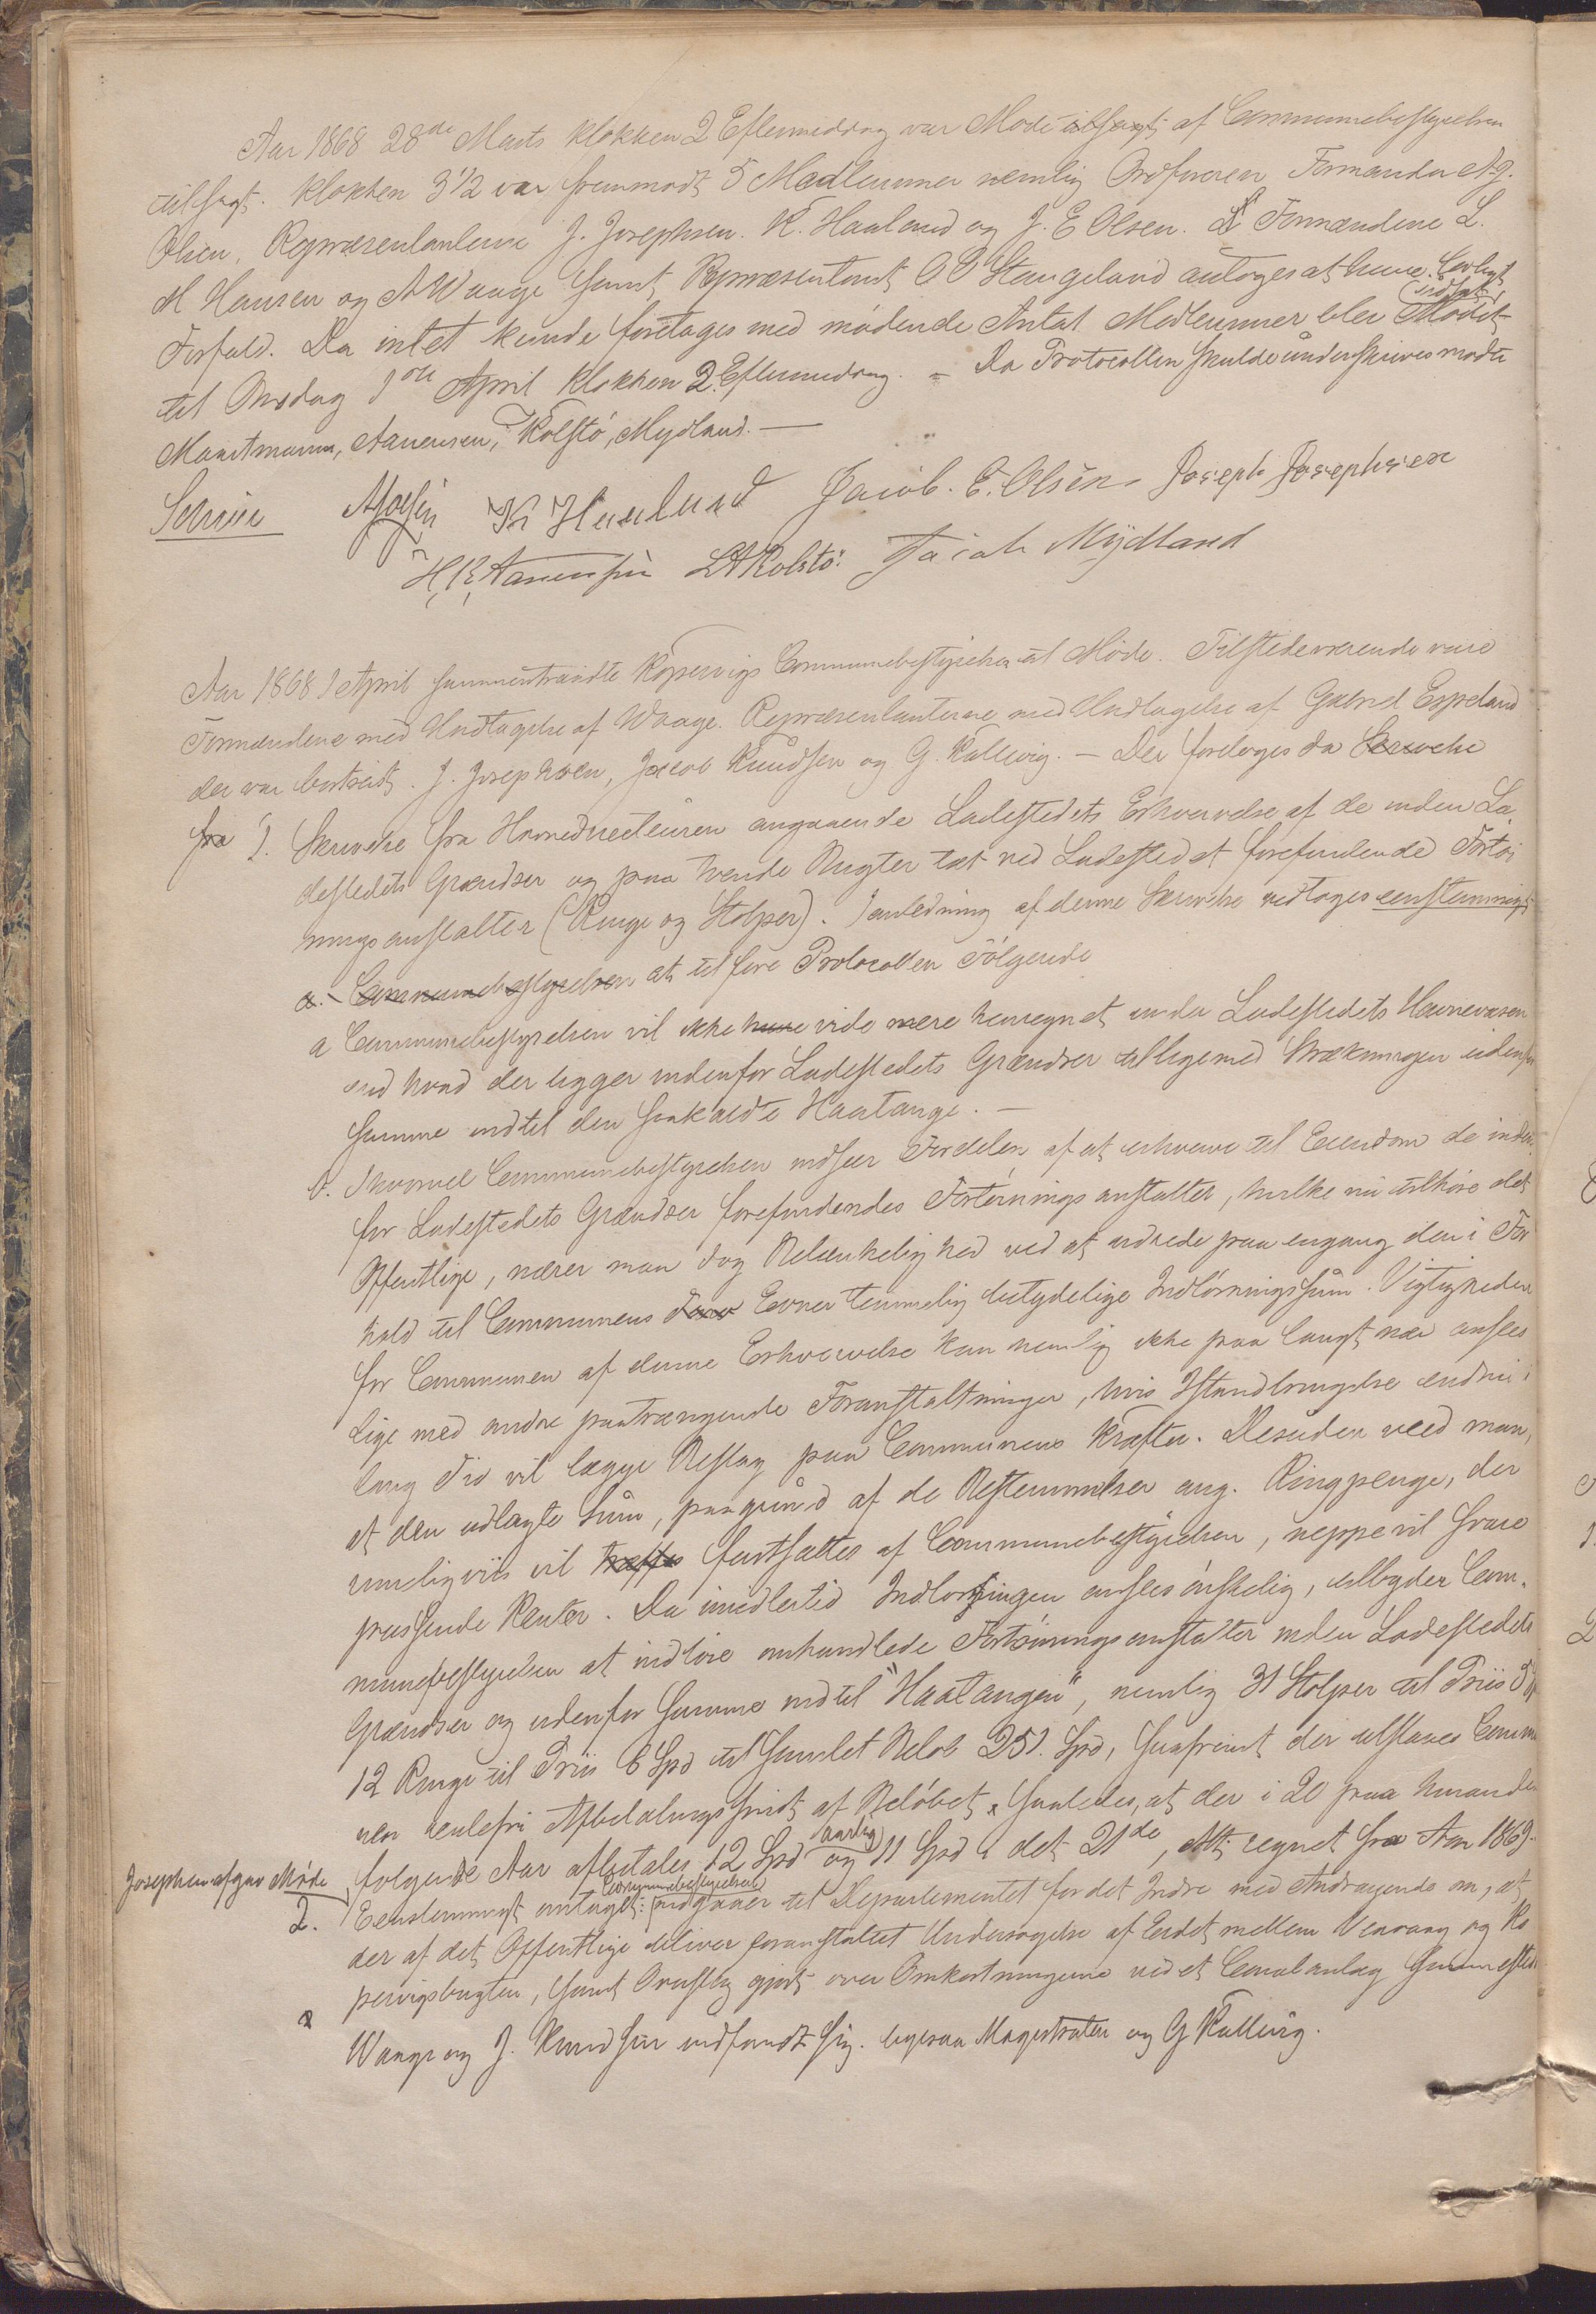 Aar 1868 28de Marts Klokken 2 Eftermiddag var Møde af Communebestyrelsen
tilsagt. Klokken 3 1/2 var fremmødt 5 Medlemmer nemlig Ordføreren Formanden A. J.
Olsen, Repræsentanterne J. Josephsen. K. Haaland og J. E Olsen. Formændene L.
M Hansen og A Waage samt Repræsentant O O Stangeland antoges at have lovligt
Forfald. Da intet kunde foretages med mødende Antal Medlemmer blev Mødet udsat
til Onsdag 1ste April Klokken 2 Eftermiddag. – Da Protocollen skulde underskrives mødte
Maartmann, Aanensen, Kolstø, Mydland. —
Schrøe A J Olsen K Haaland Jacob. E. Olsen Joseph Josephsen
H. K. Aanensen L A Kolstø: Jacob Mÿdland
Aar 1868 1 April sammentraadte Kopervigs Communebestyrelse til Møde. Tilstedeværende vare
Formændene med Undtagelse af Waage. Repræsentanterne med Undtagelse af Gabriel Espeland
der var bortreist. J. Josephsen, Jacob Knudsen og G. Kallevig. – Der foretoges da Skrivelse
fra 1. Skrivelse fra Havnedirecteuren angaaende Ladestedets Erhvervelse af de inden La-
destedets Grændser og paa tvende Bugter tæt ved Ladestedet forefindende Fortøi-
ningsanstalter (Ringe og Stolper). I anledning af denne Skrivelse vedtoges eenstemmigt
a. – Communebestyrelsen at tilføre Protocollen Følgende
a Communebestyrelsen vil ikke have vide mere henregnet under Ladestedets Havnevæsen
end hvad der ligger indenfor Ladestedets Grændser tilligemed Strækningen udenfor
samme indtil den saakaldte Haatange. —
b. Ihvorvel Communebestyrelsen indseer Fordelen af at erhverve til Eiendom de inden-
for Ladestedets Grændser forefindendes Fortøiningsanstalter, hvilke nu tilhøre det
Offentlige, nærer man dog Betænkelighed ved at udrede paa engang den i For
hold til Communens Evner temmelig betydelige Indløsningssum. Vigtigheden
for Communen af denne Erhvervelse kan nemlig ikke paa langt nær ansees
lige med andre paatrængende Foranstaltninger, hvis Istandbringelse endnu i
lang Tid vil lægge Beslag paa Communens Kræfter. Desuden veed man,
at den udlagte Sum, paagrund af de Bestemmelser ang. Ringpenge, der
rimeligviis vil træffes fastsættes af Communebestyrelsen, neppe vil svare
passende Renter. Da imidlertid Indløsningen ansees ønskelig, tilbyder Com-
munebestyrelsen at indløse omhandlede Fortøiningsanstalter inden Ladestedets
Grændser og udenfor samme indtil "Haatangen", nemlig 31 Stolper til Priis
12 Ringe til Priis 6 Spd til samlet Beløb 251. Spd, saafremt der tilstaaes Commu
nen rentefri Afbetalingsfrist af Beløbet, saaledes, at der i 20 paa hinanden
Josephsen afgav Møde følgende Aar afbetales 12 Spd aarlig og 11 Spd i det 21de, Alt regnet fra Aar 1869.
2. Eenstemmigt antaget: Communebestyrelsen indgaaer til Departementet for det Indre med Andragende om, at
der af det Offentlige bliver foranstaltet Undersøgelse af Eidet mellem Veavaag og Ko
pervigbugten, samt Overslag gjort over Omkostningerne ved et Canalanlæg sammesteds
Waage og J. Knudsen indfandt sig. ligesaa Magistraten og G Kallevig.